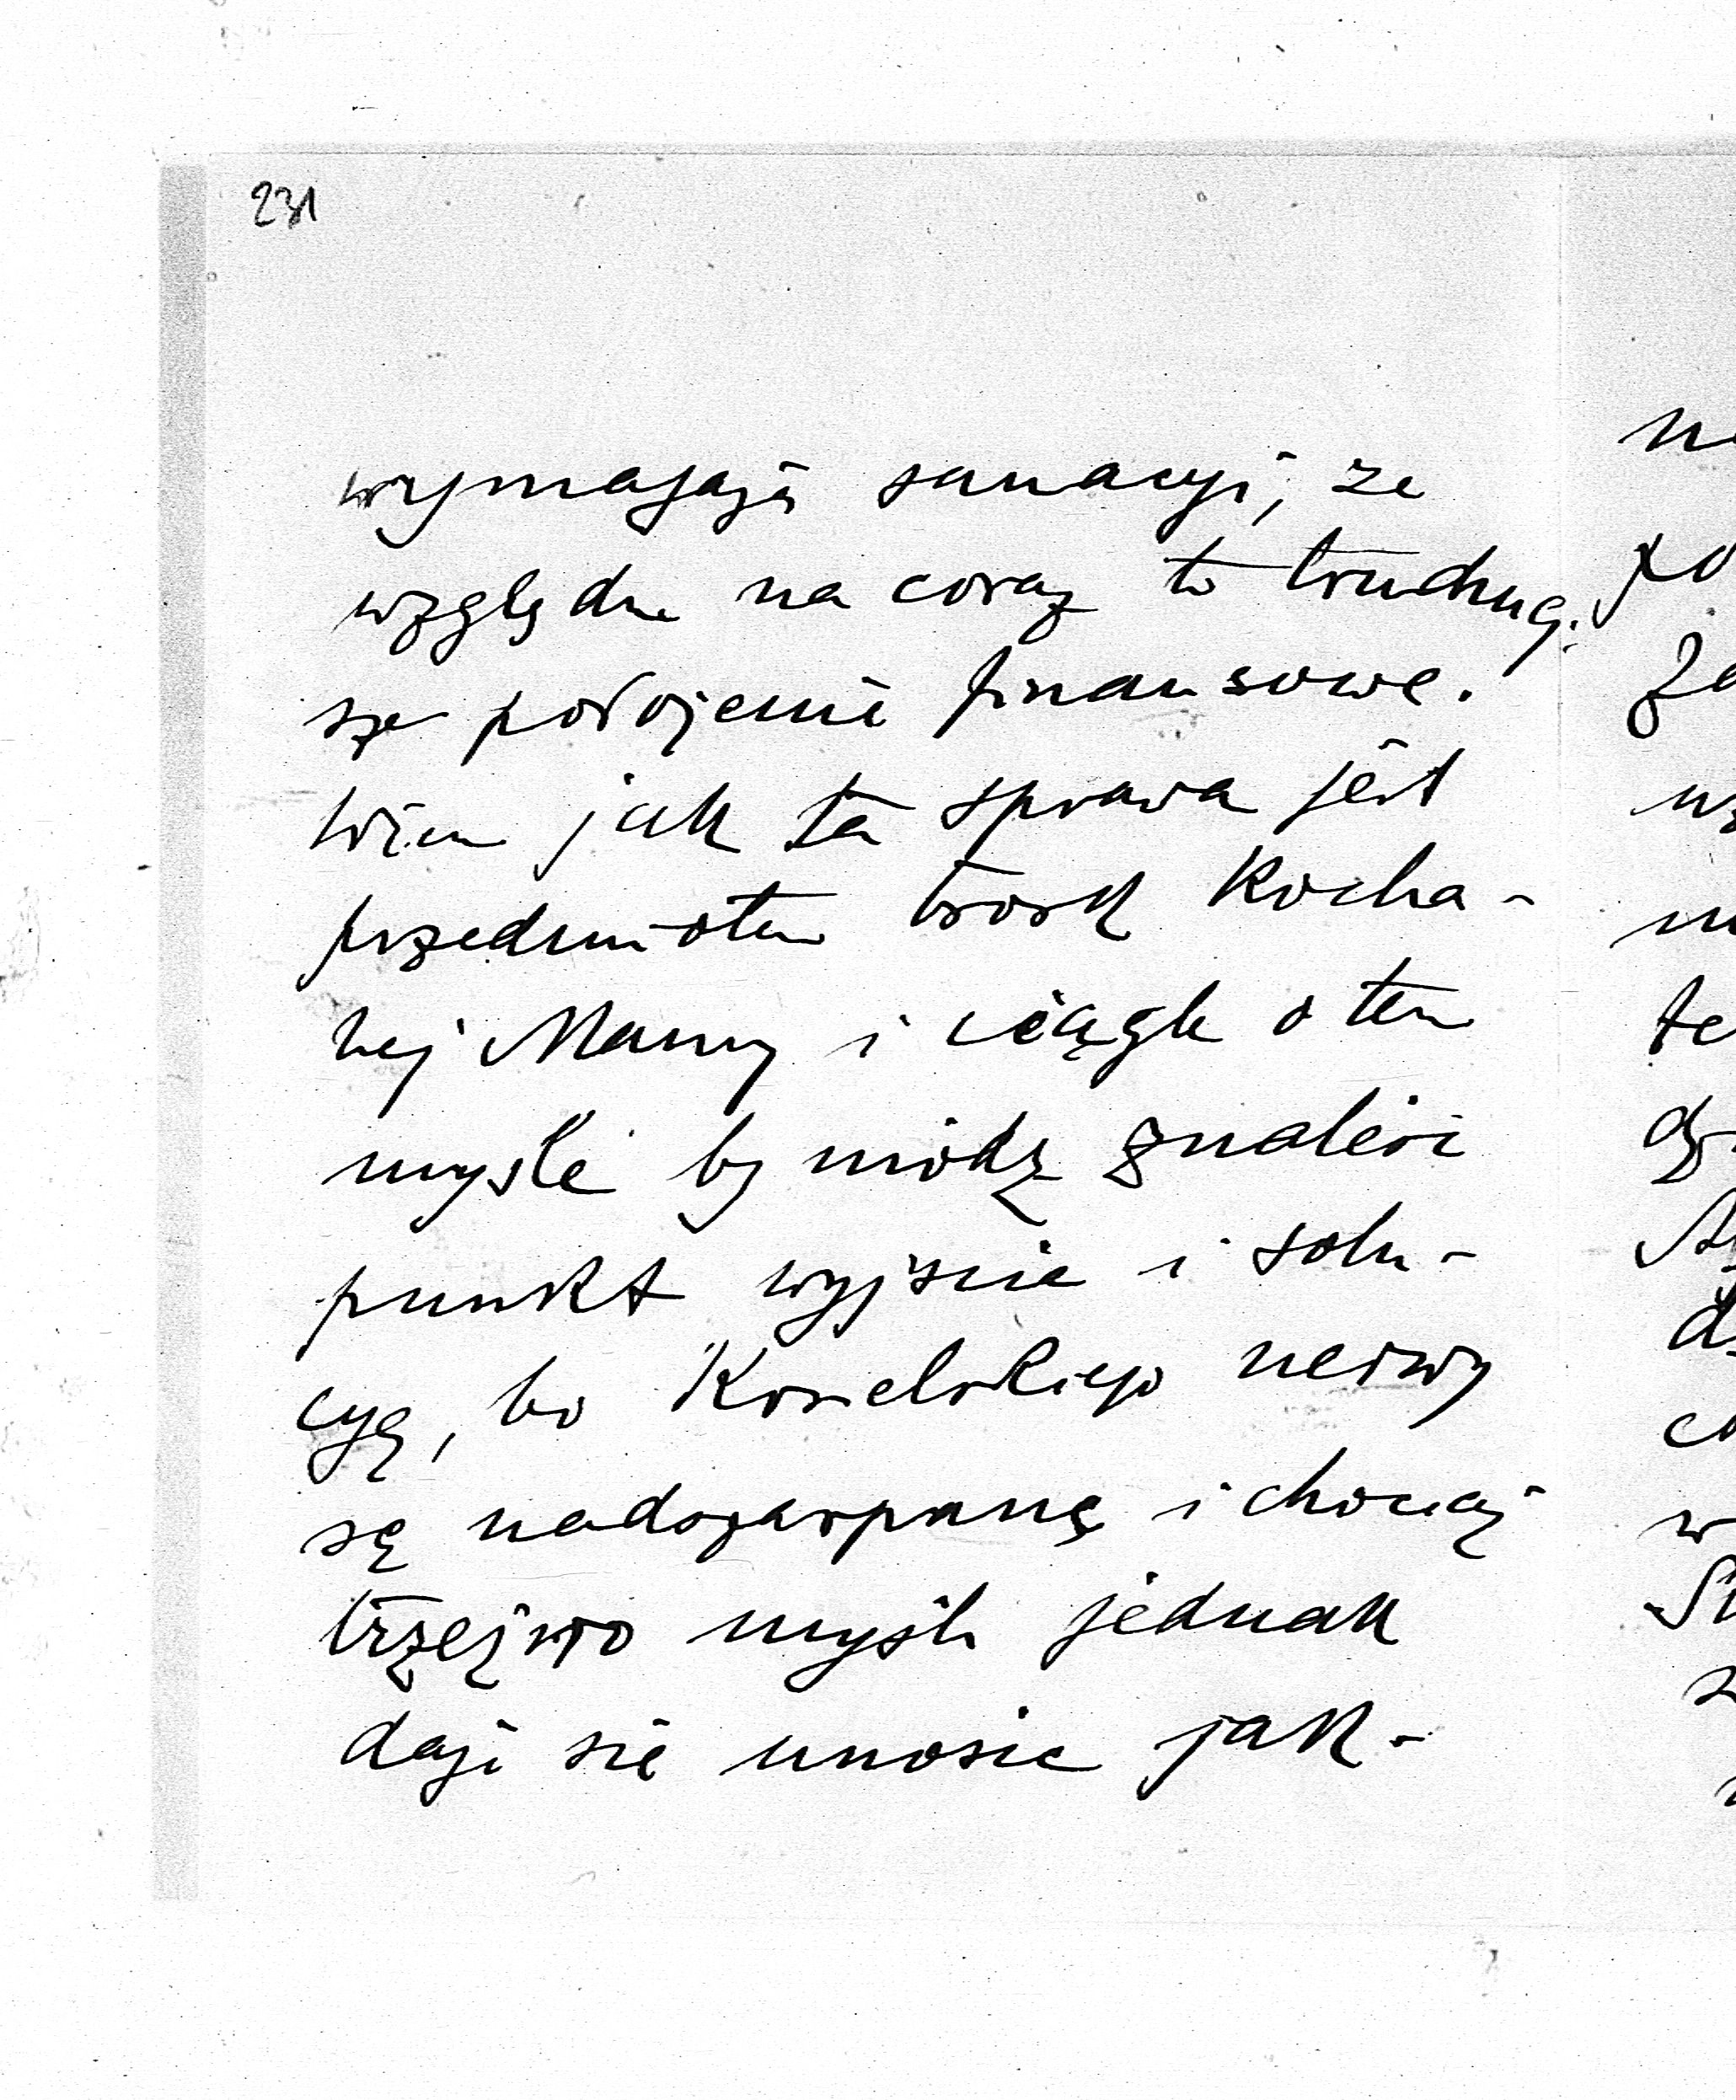 231
wymagają sanacyi, ze
względu na coraz to trudniej
sze położenie finansowe.
Wiem jak ta sprawa jest
przedmiotem trosk Kocha-
nej Mamy i ciągle o tem
myślę by módz znaleść
punkt wyjścia i solu-
cyę, bo Kosielskiego nerwy
są nadszarpane i chociaż
trzeźwo myśli jednak
daje się unosić jak-